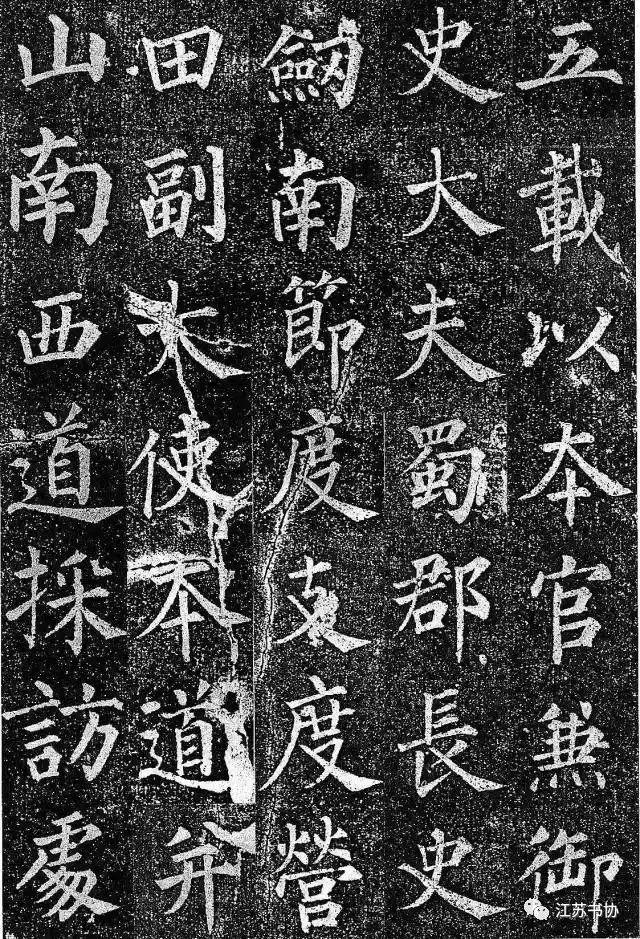 五載以本官兼御
史大夫蜀郡長史
劒南節度支度營
田副大使本道并
山南西道採訪處
江苏书协